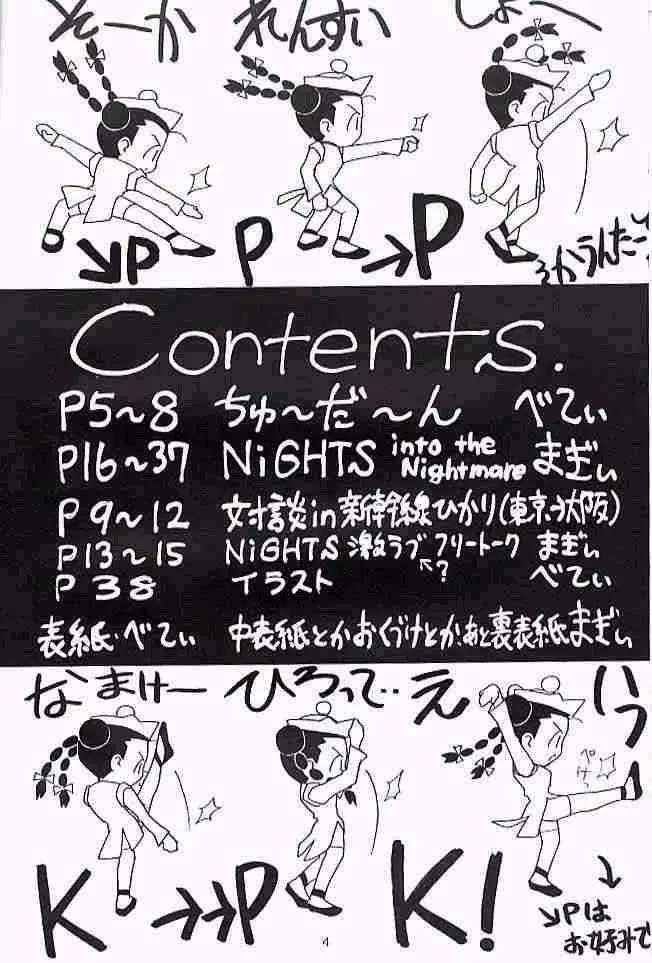 そーか れんすい しょへ
↘P P →P
そかうんたーっ
Contents.
P5〜8 ちゅ〜だ〜ん べてぃ
P16〜37 NiGHTS into the Nightmare まぎぃ
P9〜12 対談in新幹線ひかり(東京→大阪)
P13〜15 NiGHTS 激ラブ フリートーク まぎぃ
←?
P38 イラスト べてぃ
表紙・べてぃ 中表紙とかおくづけとかあと裏表紙まぎぃ
なまけー ひろって・・ えいっ
ぺけっ
K →→P K!
↓
↘Pは
お好みで
4